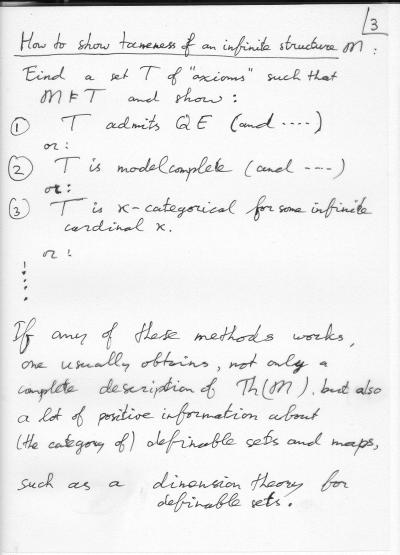 3
How to show tameness of an infinite structure M :
Find a set T of "axioms" such that
M ⊨ T and show :
① T admits QE (and ----)
or :
② T is modelcomplete (and ----)
or :
③ T is κ-categorical for some infinite
cardinal κ.
or :
If any of these methods works,
one usually obtains, not only a
complete description of Th(M), but also
a lot of positive information about
(the category of) definable sets and maps,
such as a dimension theory for
definable sets.